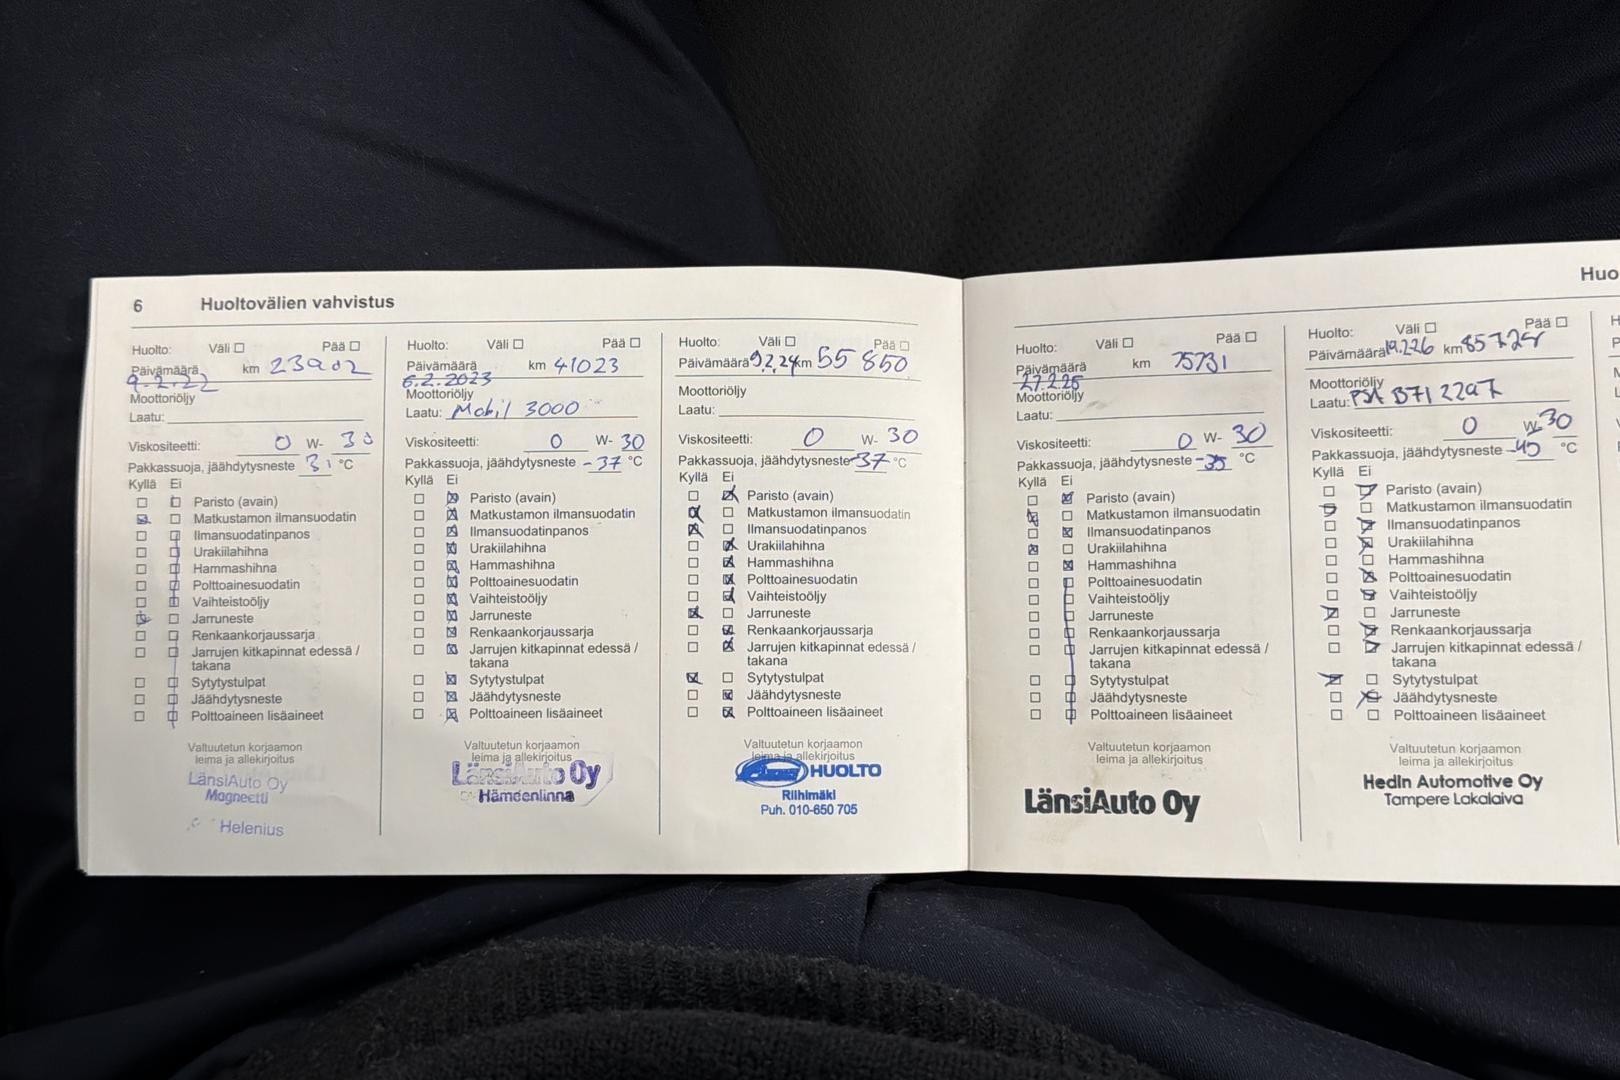 6 Huoltovälien vahvistus
Huolto: Väli Pää
Päivämäärä km 23902
9.2.22
Moottoriöljy
Laatu:
Viskositeetti: 0 W- 30
Pakkassuoja, jäähdytysneste 31 °C
Kyllä Ei
Paristo (avain)
Matkustamon ilmansuodatin
Ilmansuodatinpanos
Urakiilahihna
Hammashihna
Polttoainesuodatin
Vaihteistoöljy
Jarruneste
Renkaankorjaussarja
Jarrujen kitkapinnat edessä /
takana
Sytytystulpat
Jäähdytysneste
Polttoaineen lisäaineet
Valtuutetun korjaamon
leima ja allekirjoitus
LänsiAuto Oy
Magneetti
Helenius
Huolto: Väli Pää
Päivämäärä km 41023
6.2.2023
Moottoriöljy
Laatu: Mobil 3000
Viskositeetti: 0 W- 30
Pakkassuoja, jäähdytysneste -37 °C
Kyllä Ei
Paristo (avain)
Matkustamon ilmansuodatin
Ilmansuodatinpanos
Urakiilahihna
Hammashihna
Polttoainesuodatin
Vaihteistoöljy
Jarruneste
Renkaankorjaussarja
Jarrujen kitkapinnat edessä /
takana
Sytytystulpat
Jäähdytysneste
Polttoaineen lisäaineet
Valtuutetun korjaamon
leima ja allekirjoitus
LänsiAuto Oy
Hämeenlinna
Huolto: Väli Pää
Päivämäärä 9.2.24 km 55 850
Moottoriöljy
Laatu:
Viskositeetti: 0 W- 30
Pakkassuoja, jäähdytysneste -37 °C
Kyllä Ei
Paristo (avain)
Matkustamon ilmansuodatin
Ilmansuodatinpanos
Urakiilahihna
Hammashihna
Polttoainesuodatin
Vaihteistoöljy
Jarruneste
Renkaankorjaussarja
Jarrujen kitkapinnat edessä /
takana
Sytytystulpat
Jäähdytysneste
Polttoaineen lisäaineet
Valtuutetun korjaamon
leima ja allekirjoitus
HUOLTO
Riihimäki
Puh. 010-650 705
Huo
Huolto: Väli Pää
Päivämäärä km 75731
27.2.25
Moottoriöljy
Laatu:
Viskositeetti: 0 W- 30
Pakkassuoja, jäähdytysneste -35 °C
Kyllä Ei
Paristo (avain)
Matkustamon ilmansuodatin
Ilmansuodatinpanos
Urakiilahihna
Hammashihna
Polttoainesuodatin
Vaihteistoöljy
Jarruneste
Renkaankorjaussarja
Jarrujen kitkapinnat edessä /
takana
Sytytystulpat
Jäähdytysneste
Polttoaineen lisäaineet
Valtuutetun korjaamon
leima ja allekirjoitus
LänsiAuto Oy
Huolto: Väli Pää
Päivämäärä 19.2.26 km 85725
Moottoriöljy
Laatu: PSA B71 2297
Viskositeetti: 0 W- 30
Pakkassuoja, jäähdytysneste -45 °C
Kyllä Ei
Paristo (avain)
Matkustamon ilmansuodatin
Ilmansuodatinpanos
Urakiilahihna
Hammashihna
Polttoainesuodatin
Vaihteistoöljy
Jarruneste
Renkaankorjaussarja
Jarrujen kitkapinnat edessä /
takana
Sytytystulpat
Jäähdytysneste
Polttoaineen lisäaineet
Valtuutetun korjaamon
leima ja allekirjoitus
Hedin Automotive Oy
Tampere Lakalaiva